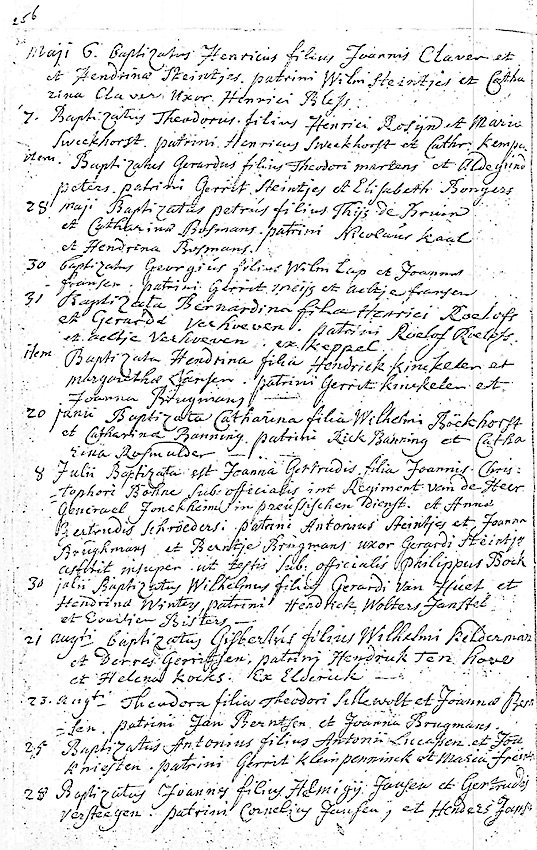 256
Maji 6. Baptizatus Henricus filius Joannis Claver et
et Hendrina Steintjes. patrini Wilm Steintjes et Catha
rina Claver Uxor Henrici Bless
7. Baptizatus Theodorus filius Henrici Rosijn et Maria
Sweekhorst. patrini Henricus Sweekhorst et Cathr. Kempe
item. Baptizatus Gerardus filius Theodori martens et Aldegund
peters. patrini Gerrit Steintjes et Elisabeth Bongers
28 maji Baptizatus petrus filius Thijs de Bruin
et Catharina Bosmans. patrini Nicolaus Kaal
et Hendrina Bosmans.
30 baptizatus Georgius filius Wilm Lap et Joanna
fransen. patrini Gerrit et aeltje fransen
31 Baptizata Bernardina filia Henrici Roelofs
et Gerarda Verhoeven. patrini Roelof Roelofs.
et aeltje Verhoeven. ex Keppel
item. Baptizata Hendrina filia Hendrick Kinkeler et
margaretha Jansen. patrini Gerrit Kinkeler et
Joanna Brugmans
20 Junii Baptizata Catharina filia Wilhelmi Böckhorst
et Catharina Banning. patrini Rick Banning et Catha
rina Rosmulder
8 Julii Baptizata est Joanna Gertrudis filia Joannis Chris-
tophori Bohne Sub officialis int Regiment van de Heer
Generael Jonckheim in preussischen Dienst. et Anna
Gertrudis Schroeders. patrini Antonius Steintjes et Joanna
Brughmans et Berntje Brugmans uxor Gerardi Steintjes
astitit insuper ut testis sub officialis Philippus Bock
30 julii Baptizatus Wilhelmus filius Gerardi van Huet et
Hendrina Winters patrini Hendrick Wolters Janssel
et Everdien Risters
21 augti baptizatus Gisbertus filius Wilhelmi Helderman
et Derres Gerritsen. patrinj Hendrick Ten hove
et Helena Kocks. Ex Elderick
23. augti Theodora filia Theodori Sellewolt et Joanna Bern-
tsen. patrini Jan Berntsen et Joanna Brugmans.
25 Baptizatus Antonius filius Antonii Lucassen et
Kniesten. patrini Gerrit Kleinpenninck et Maria
28 Baptizatus Joannes filius Helmigij Jansen et Gertrudis
versteegen. patrini Cornelius Jansen, et Henders Jans